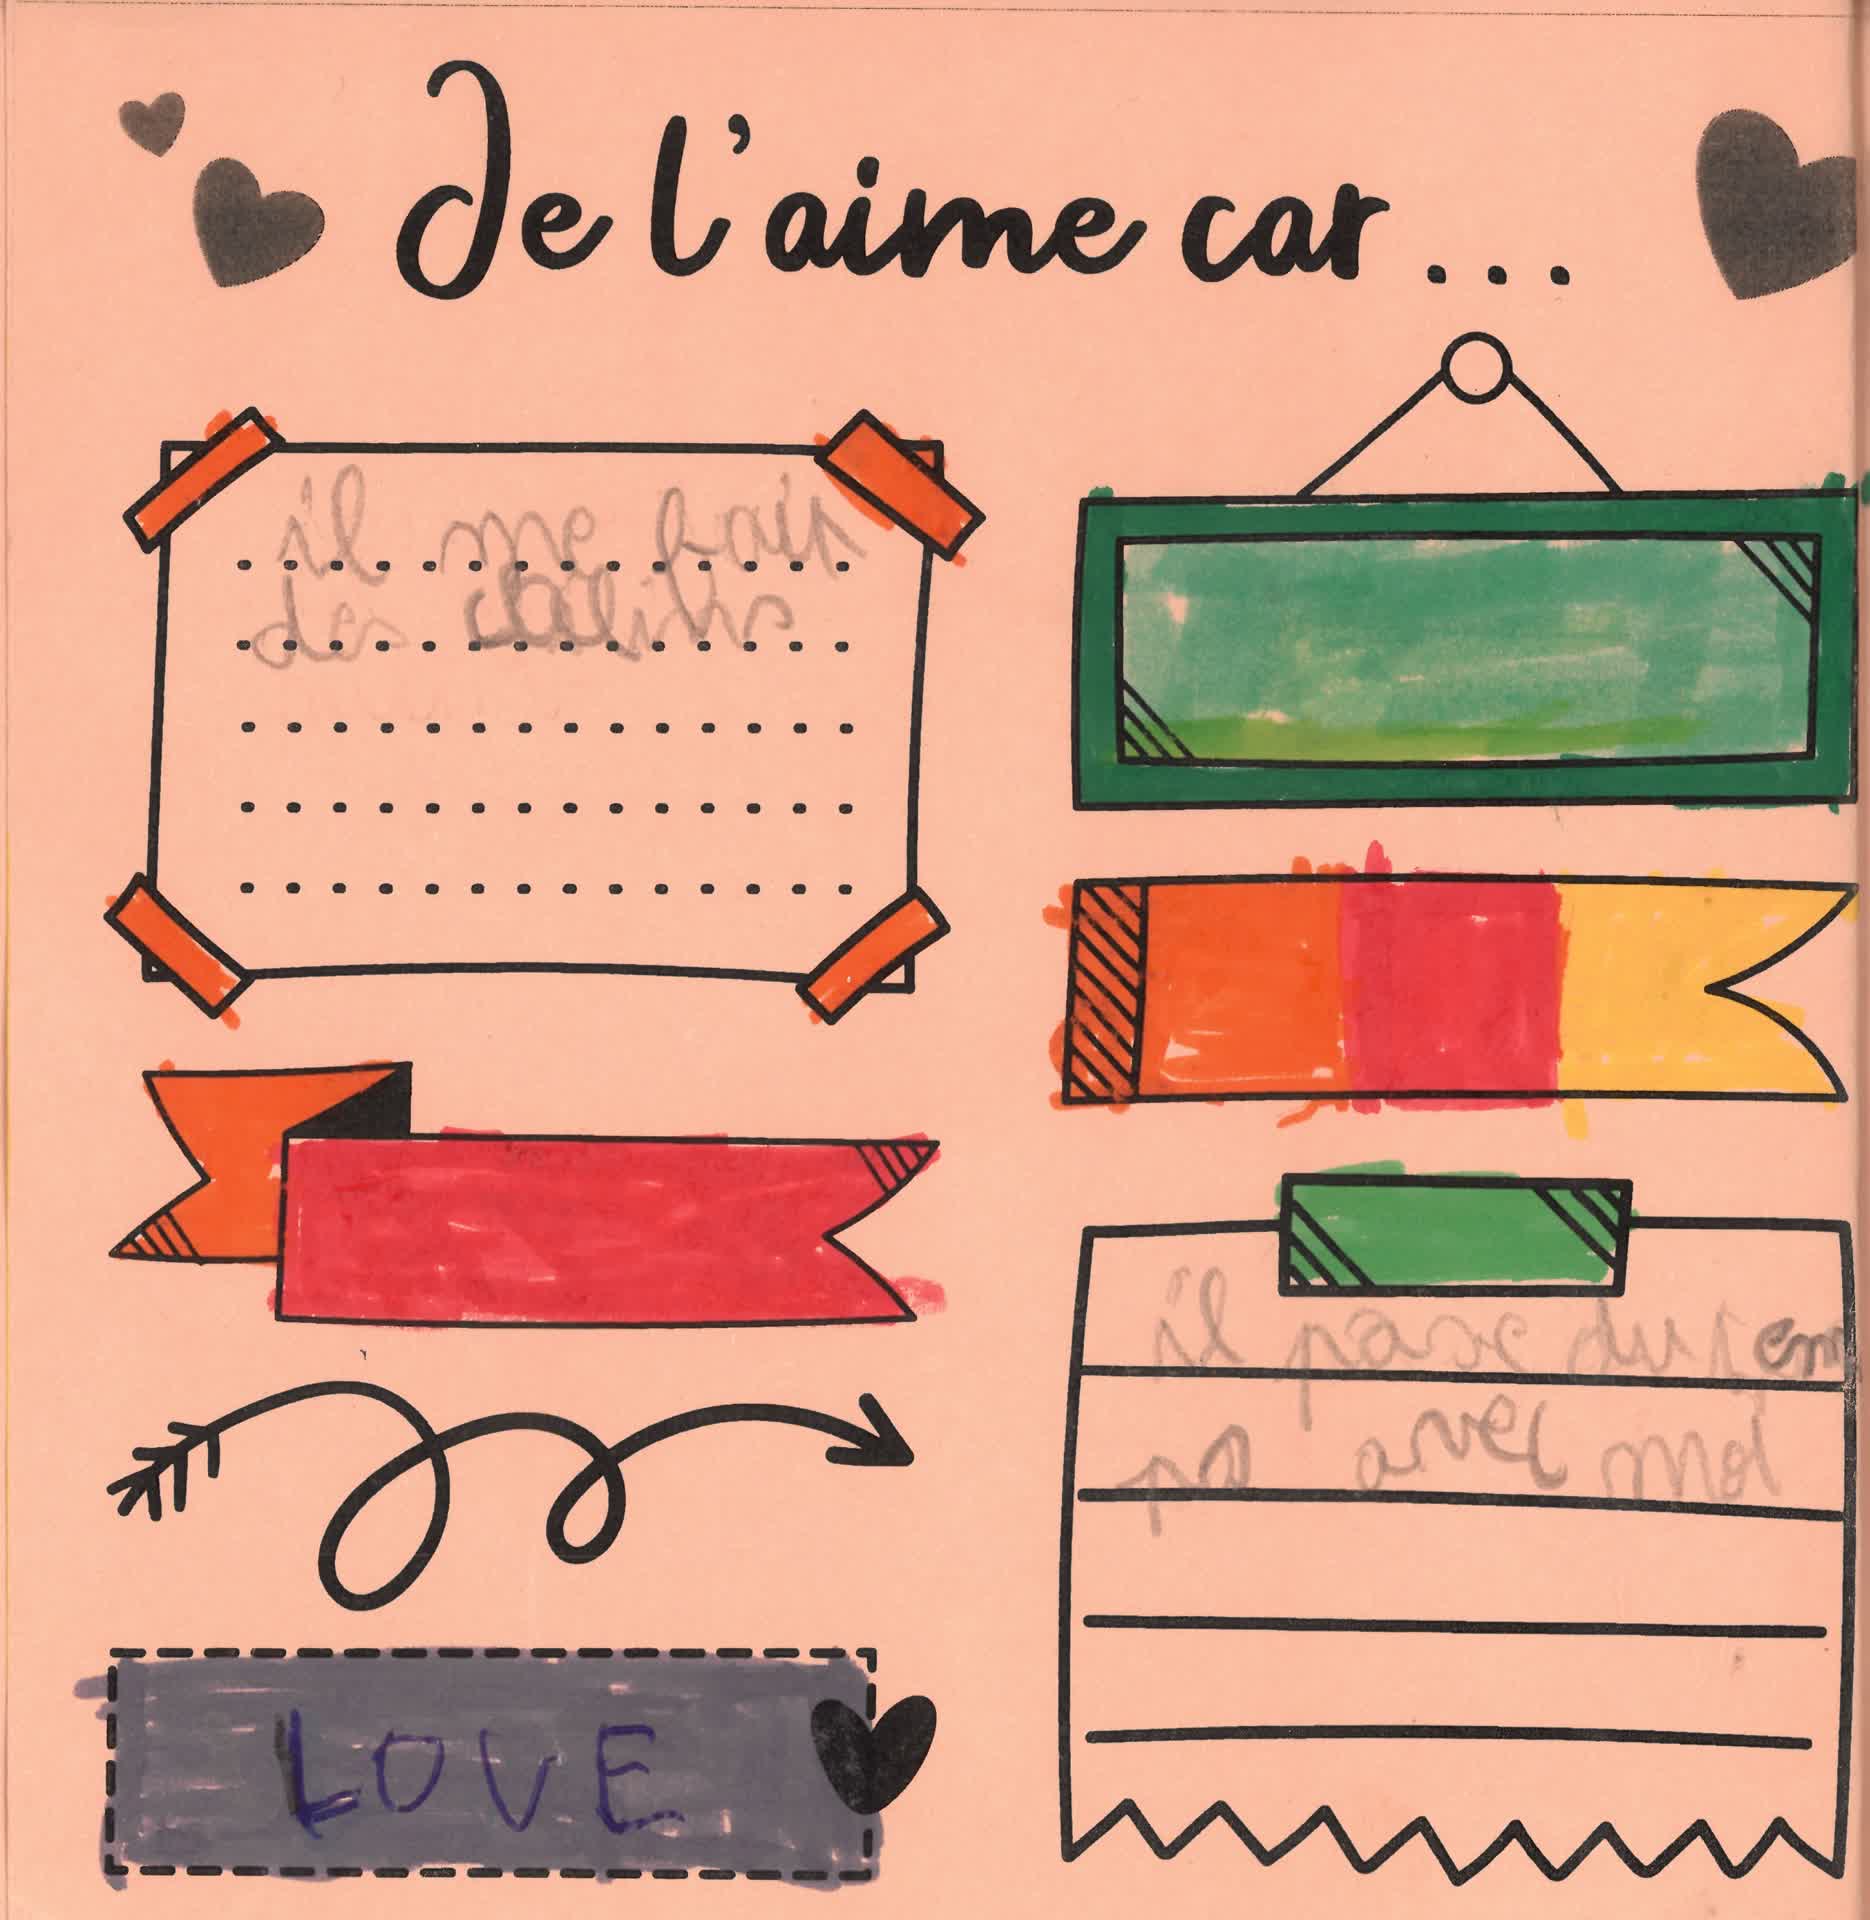 Je l'aime car...
il me fais
des câlins
il passe du tem
ps avec moi
LOVE